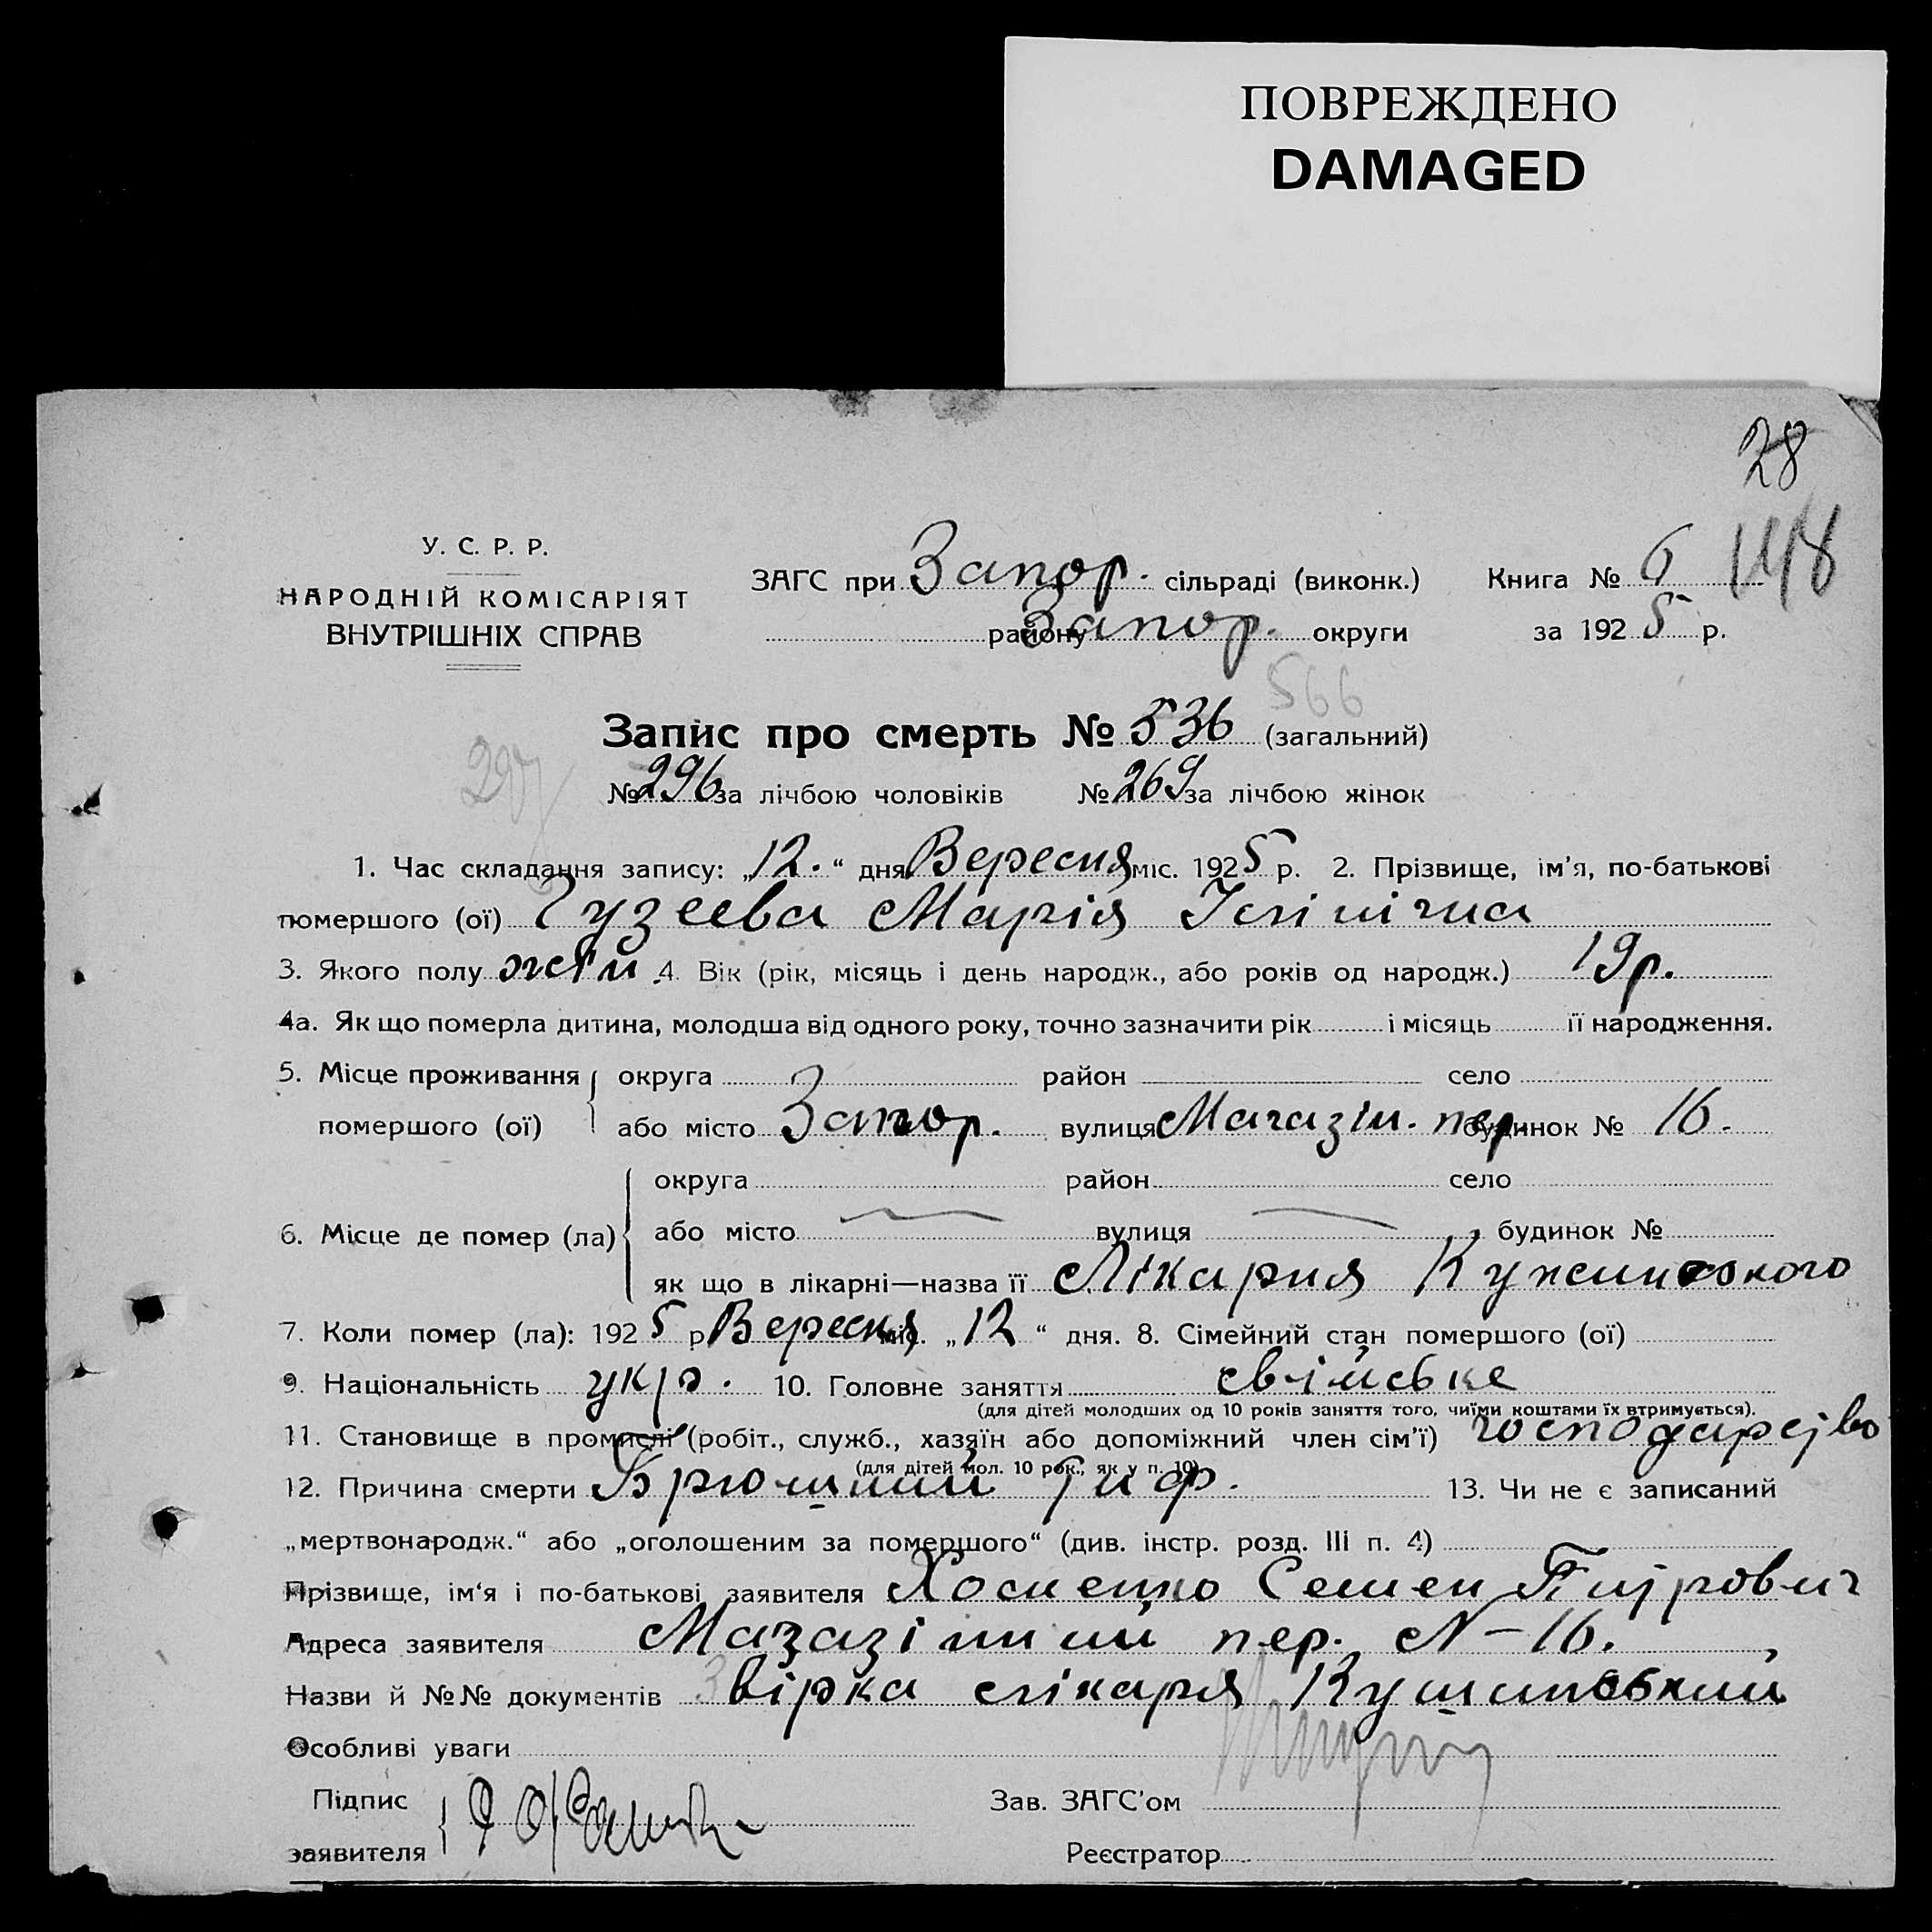 ПОВРЕЖДЕНО
DAMAGED
28
148
У. С. Р. Р.
НАРОДНІЙ КОМІСАРІЯТ
ВНУТРІШНІХ СПРАВ
ЗАГС при Запор. сільраді (виконк.) Книга № 6
району Запор. округи за 192 5 р.
566
Запис про смерть № 536 (загальний)
297
№ 296 за лічбою чоловіків № 269 за лічбою жінок
1. Час складання запису: „12." дня Вересня міс. 1925 р. 2. Прізвище, ім'я, по-батькові
помершого (ої) Гузеева Марія
3. Якого полу жін 4. Вік (рік, місяць і день народж., або років од народж.) 19 р.
4а. Як що померла дитина, молодша від одного року, точно зазначити рік і місяць її народження.
5. Місце проживання округа район село
помершого (ої) або місто Запор. вулиця Магазін. пер. будинок № 16.
округа район село
6. Місце де помер (ла) або місто вулиця будинок №
як що в лікарні—назва її Лікарня
7. Коли помер (ла): 192 5 р Вересня міс. „12" дня. 8. Сімейний стан помершого (ої)
9. Національність укр. 10. Головне заняття свійське
(для дітей молодших од 10 років заняття того, чиїми коштами їх втримується).
11. Становище в промислі (робіт., служб., хазяїн або допоміжний член сім'ї) господарство
(для дітей мол. 10 рок., як у п. 10)
12. Причина смерти Брюшний Тиф. 13. Чи не є записаний
„мертвонародж." або „оголошеним за помершого" (див. інстр. розд. III п. 4)
Прізвище, ім'я і по-батькові заявителя Хоменко Семен Питрович
Адреса заявителя Магазінний пер. N-16.
Назви й №№ документів Звірка лікаря
Особливі уваги
Підпис
заявителя
Зав. ЗАГС'ом
Реєстратор